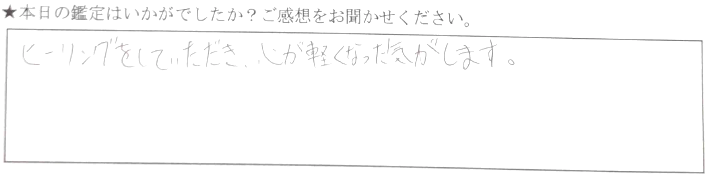 ★本日の鑑定はいかがでしたか？ご感想をお聞かせください。
ヒーリングをしていただき、心が軽くなった気がします。